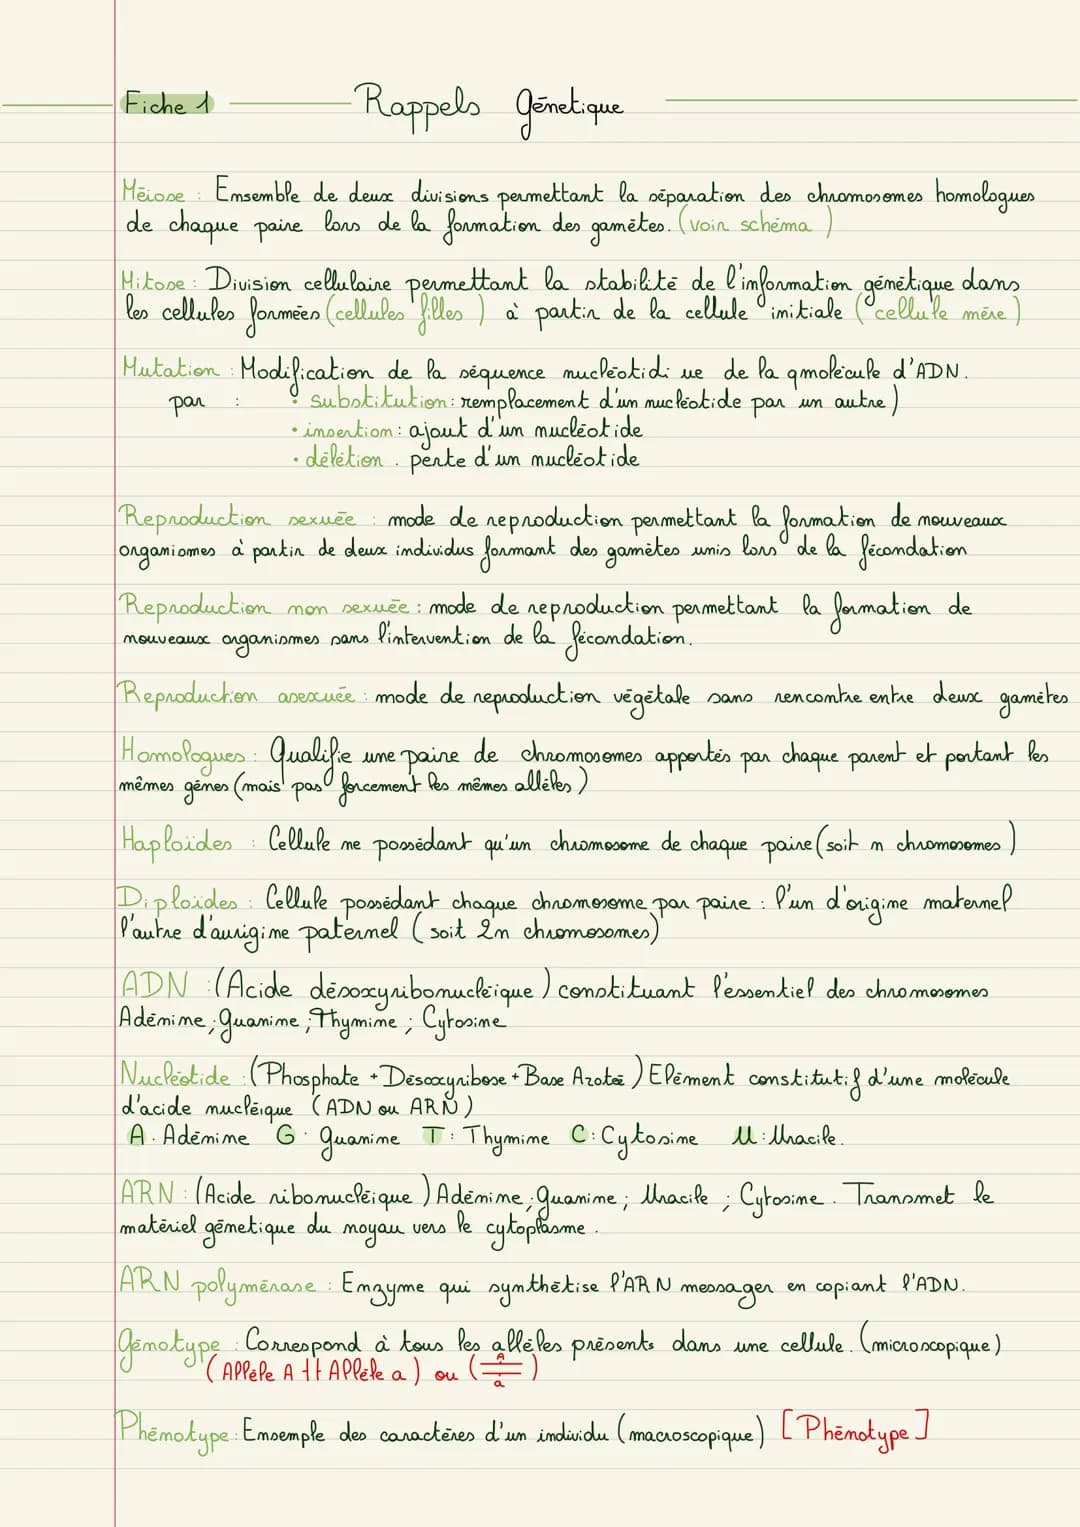 Fiche 1 Rappels génetique
Méiose : Ensemble de deux divisions permettant la séparation des chromosomes homologues
de chaque paire lors de la formation des gamètes. (voir schéma)
Mitose : Division cellulaire permettant la stabilité de l'information génétique dans
les cellules formées (cellules filles) à partir de la cellule initiale (cellule mère)
Mutation : Modification de la séquence nucléotidi ue de la qmolécule d'ADN.
par : • substitution : remplacement d'un nucléotide par un autre)
• insertion : ajout d'un nucléotide
• délétion . perte d'un nucléotide
Reproduction sexuée : mode de reproduction permettant la formation de nouveaux
organiomes à partir de deux individus formant des gamètes unis lors de la fécondation
Reproduction non sexuée : mode de reproduction permettant la formation de
nouveaux organismes sans l'intervention de la fécondation.
Reproduction asexuée : mode de reproduction végétale sans rencontre entre deux gamètes
Homologues : Qualifie une paire de chromosomes apportés par chaque parent et portant les
mêmes gènes (mais pas forcement les mêmes allèles)
Haploïdes : Cellule ne possédant qu'un chromosome de chaque paire (soit n chromosomes)
Diploïdes : Cellule possédant chaque chromosome par paire : l'un d'origine maternel
l'autre d'aurigine paternel (soit 2n chromosomes)
ADN : (Acide désoxyribonucléique) constituant l'essentiel des chromosomes
Adénine ; Guanine ; Thymine ; Cytosine
Nucléotide : (Phosphate + Désoxyribose + Base Azotée) Elément constitutif d'une molécule
d'acide nucléique (ADN ou ARN)
A . Adénine G . Guanine T : Thymine C : Cytosine U : Uracile.
ARN : (Acide ribonucléique) Adénine ; Guanine ; Uracile ; Cytosine . Transmet le
matériel génetique du noyau vers le cytoplasme .
ARN polymérase : Enzyme qui synthétise l'ARN messager en copiant l'ADN.
Génotype : Correspond à tous les allèles présents dans une cellule. (microscopique)
(Allèle A // Allèle a) ou (A/a)
Phénotype : Ensemple des caractères d'un individu (macroscopique) [Phénotype]